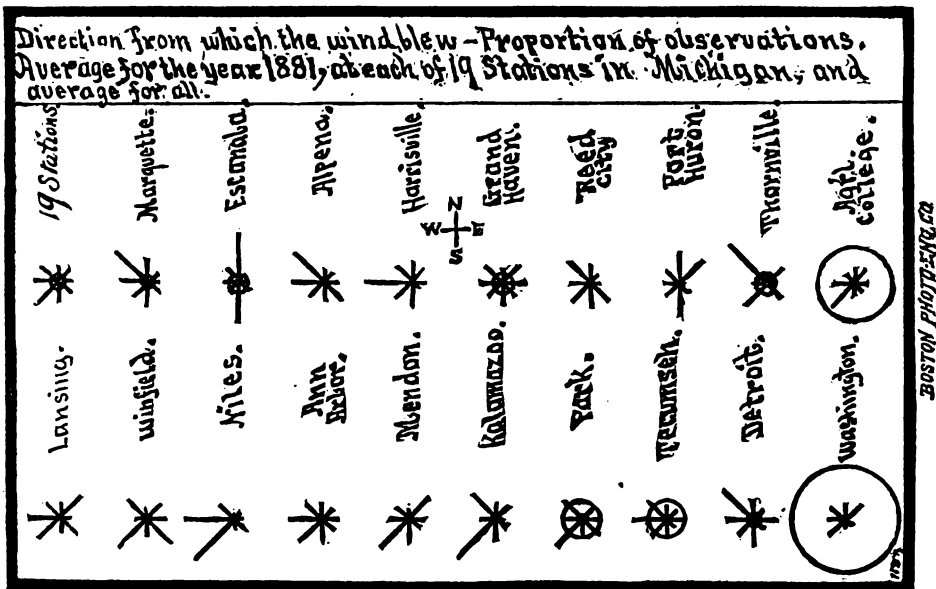 Direction from which the wind blew - Proportion of observations.
Average for the year 1881, at each of 19 Stations in Michigan, and
average for all.
19 Stations.
Marquette.
Escanaba.
Alpena.
Harrisville.
Grand
Haven.
Reed
City
Port
Huron.
Thornville.
Agr'l
College.
N
W E
S
Lansing.
Winfield.
Niles.
Ann
Arbor.
Mendon.
Kalamazoo.
Park.
Tecumseh.
Detroit.
Washington.
BOSTON PHOTO-ENG. CO